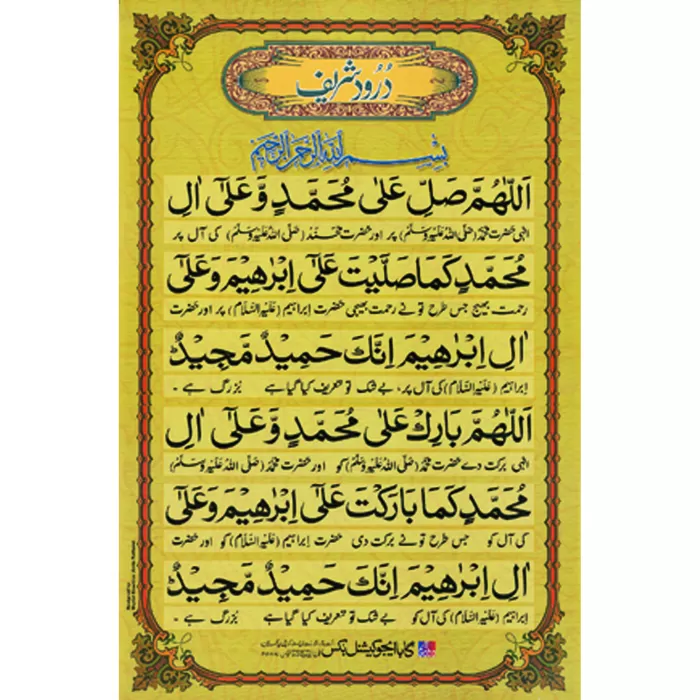 دُرُود شریف
بِسْمِ اللهِ الرَّحْمٰنِ الرَّحِيْمِ
اَللّٰهُمَّ صَلِّ عَلٰى مُحَمَّدٍ وَّعَلٰٓى اٰلِ
الٰہی حضرت محمدؐ (صَلَّی اللہُ عَلَیْہِ وَسَلَّمْ) پر اور حضرت محمدؐ (صَلَّی اللہُ عَلَیْہِ وَسَلَّمْ) کی آل پر
مُحَمَّدٍ كَمَا صَلَّيْتَ عَلٰٓى اِبْرٰهِيْمَ وَعَلٰٓى
رحمت بھیج جس طرح تو نے رحمت بھیجی حضرت اِبراہیم (عَلَیْہِ السَّلَام) پر اور حضرت
اٰلِ اِبْرٰهِيْمَ اِنَّكَ حَمِيْدٌ مَّجِيْدٌ
اِبراہیم (عَلَیْہِ السَّلَام) کی آل پر، بے شک تو تعریف کیا گیا ہے بُزرگ ہے ۔
اَللّٰهُمَّ بَارِكْ عَلٰى مُحَمَّدٍ وَّعَلٰٓى اٰلِ
الٰہی برکت دے حضرت محمدؐ (صَلَّی اللہُ عَلَیْہِ وَسَلَّمْ) کو اور حضرت محمدؐ (صَلَّی اللہُ عَلَیْہِ وَسَلَّمْ)
مُحَمَّدٍ كَمَا بَارَكْتَ عَلٰٓى اِبْرٰهِيْمَ وَعَلٰٓى
کی آل کو جس طرح تو نے برکت دی حضرت اِبراہیم (عَلَیْہِ السَّلَام) کو اور حضرت
اٰلِ اِبْرٰهِيْمَ اِنَّكَ حَمِيْدٌ مَّجِيْدٌ
اِبراہیم (عَلَیْہِ السَّلَام) کی آل کو بے شک تو تعریف کیا گیا ہے بُزرگ ہے ۔
گابا ایجوکیشنل بکس